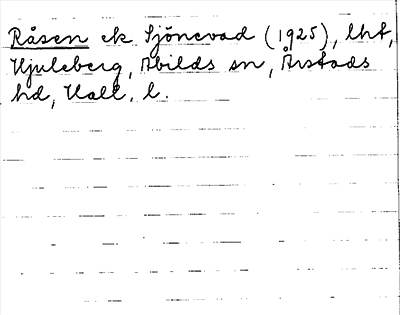 Råsen ek Sjönevad (1925), lht,
Hjuleberg, Abilds sn, Årstads
hd, Hall. l.